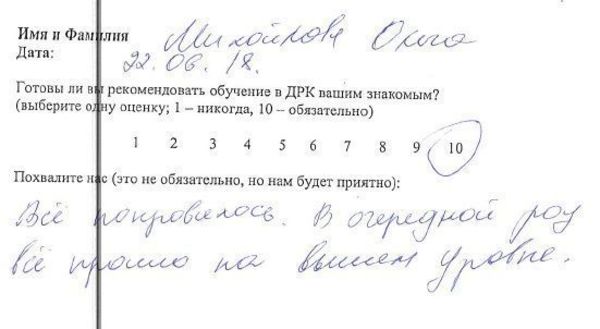 Имя и Фамилия Михайлова Ольга
Дата: 22.06.18.
Готовы ли вы рекомендовать обучение в ДРК вашим знакомым?
(выберите одну оценку; 1 – никогда, 10 – обязательно)
1 2 3 4 5 6 7 8 9 10
Похвалите нас (это не обязательно, но нам будет приятно):
Всё понравилось. В очередной раз
всё прошло на высшем уровне.